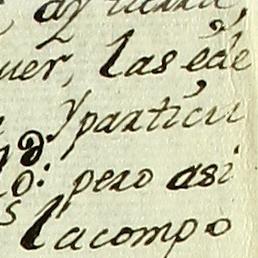 uer, las ede
y particu
lo: pero asi
lacompo